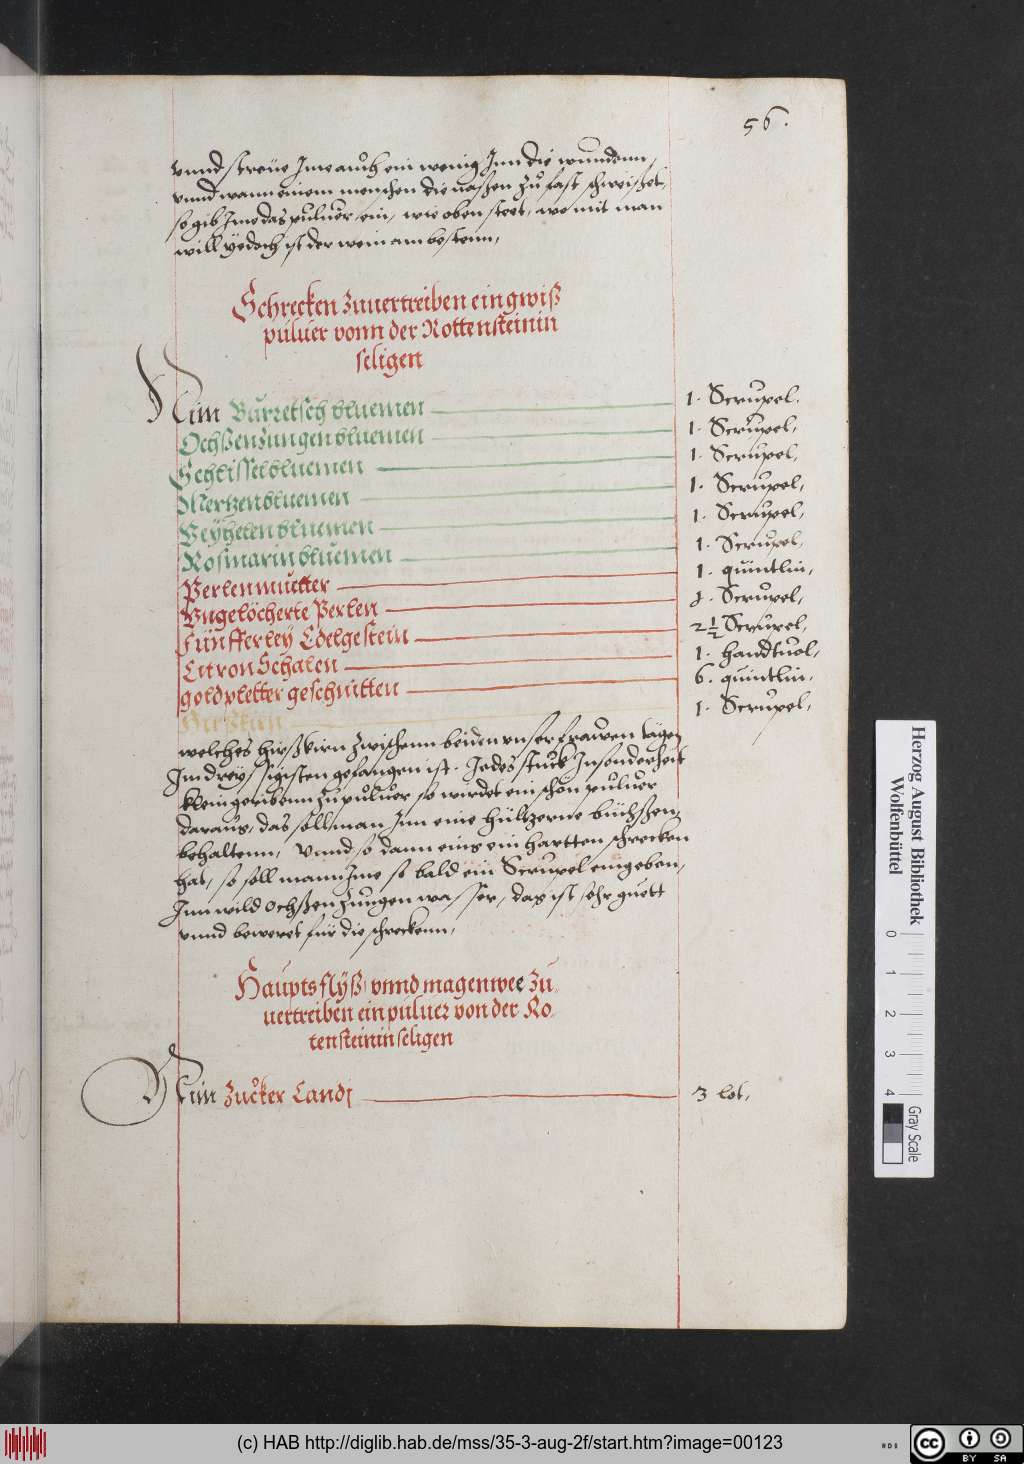 56.
vnnd streüe Ime auch ein wenig Inn die wunden,
vnnd wann einem menschen die naßen zu fast schweißet,
so gib Ime das puluer ein, wie oben steet, wo mit man
will yedoch ist der wein am besten,
Schrecken zuuertreiben ein gwiß
puluer vonn der Rottensteinin
seligen
Nim Burretsch bluemen 1. Scrupel.
Ochßenzungen bluemen 1. Scrupel,
Schlissel bluemen 1. Scrupel,
Mertzen bluemen 1. Scrupel,
Veyhelen bluemen 1. Scrupel,
Rosmarin bluemen 1. Scrupel,
Perlenmuetter 1. quintlin,
Vngelöcherte Perlen 1. Scrupel,
Fünfferley Edelgestein 2½ Scrupel,
Citron Schalen 1. handtuol,
goldpletter geschnitten 6. quintlin,
Hirßkirn 1. Scrupel,
welches hirßkirn zwischenn beiden vnser frawen tägen
Im dreyssigisten gefangen ist. Jedes stuck Insonderheit
klein geribenn zu puluer so wirdet ein schön puluer
daraus, das soll man Inn eine hültzerne büchßen
behaltenn, Vnnd so dann eins ein hartten schrecken
hat, so soll mann Ime so bald ein Scrupel eingeben,
Inn wild ochßenzungen wasser, das ist sehr guett
vnnd beweret für die schreckenn,
Hauptsflyß vnnd magenwee zu
uertreiben ein puluer von der Ro
tensteinin seligen
Nim Zucker Candj 3 lot,
Herzog August Bibliothek
Wolfenbüttel
0 1 2 3 4
Gray Scale
(c) HAB http://diglib.hab.de/mss/35-3-aug-2f/start.htm?image=00123
cc BY SA